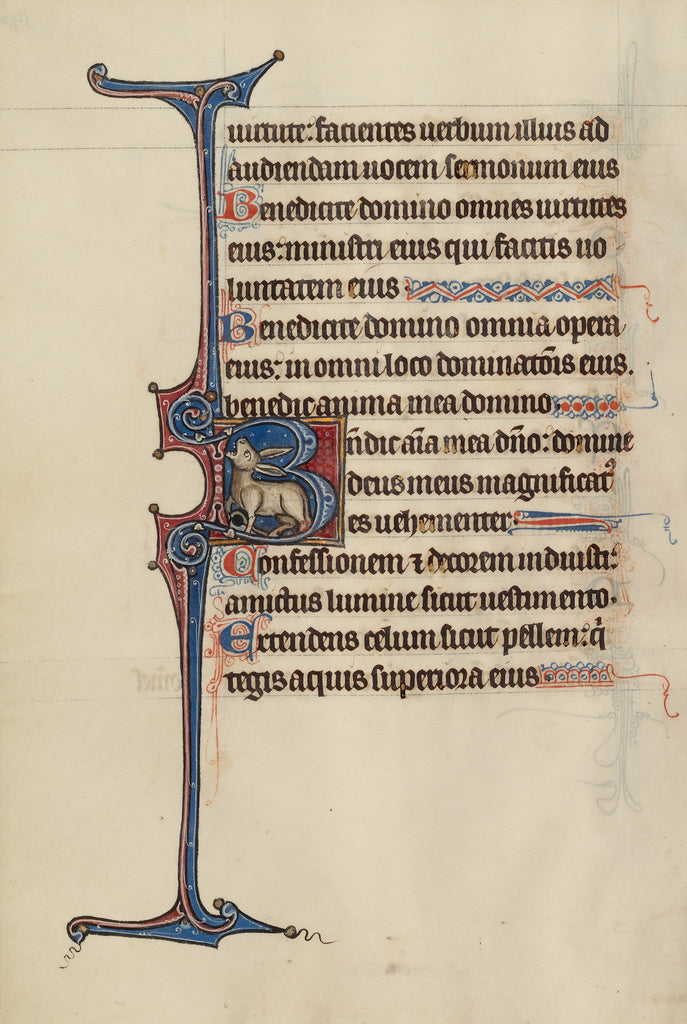 uirtute: facientes uerbum illius ad
audiendam uocem sermonum eius
Benedicite domino omnes uirtutes
eius: ministri eius qui facitis uo
luntatem eius
Benedicite domino omnia opera
eius: in omni loco dominatõis eius.
benedic anima mea domino
Bñdic aĩa mea dño: domine
deus meus magnificatꝰ
es uehementer
Confessionem ⁊ decorem induisti:
amictus lumine sicut uestimento.
Extendens celum sicut pellem: q̃
tegis aquis superiora eius